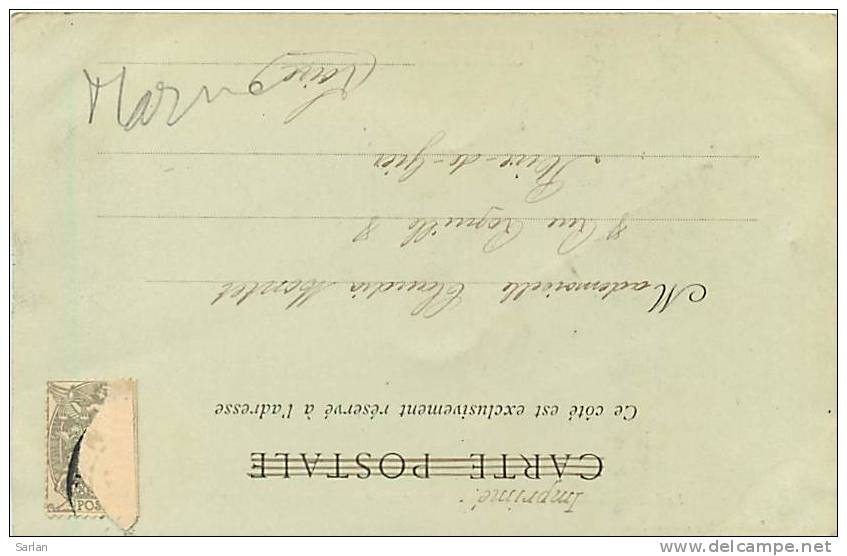 Imprimé.
CARTE POSTALE
Ce côté est exclusivement réservé à l'adresse
POS
Mademoiselle Claudia Montet
8 Rue 8
Rive-de-Gier
Loire
Marne
Sarlan
delcampe.net